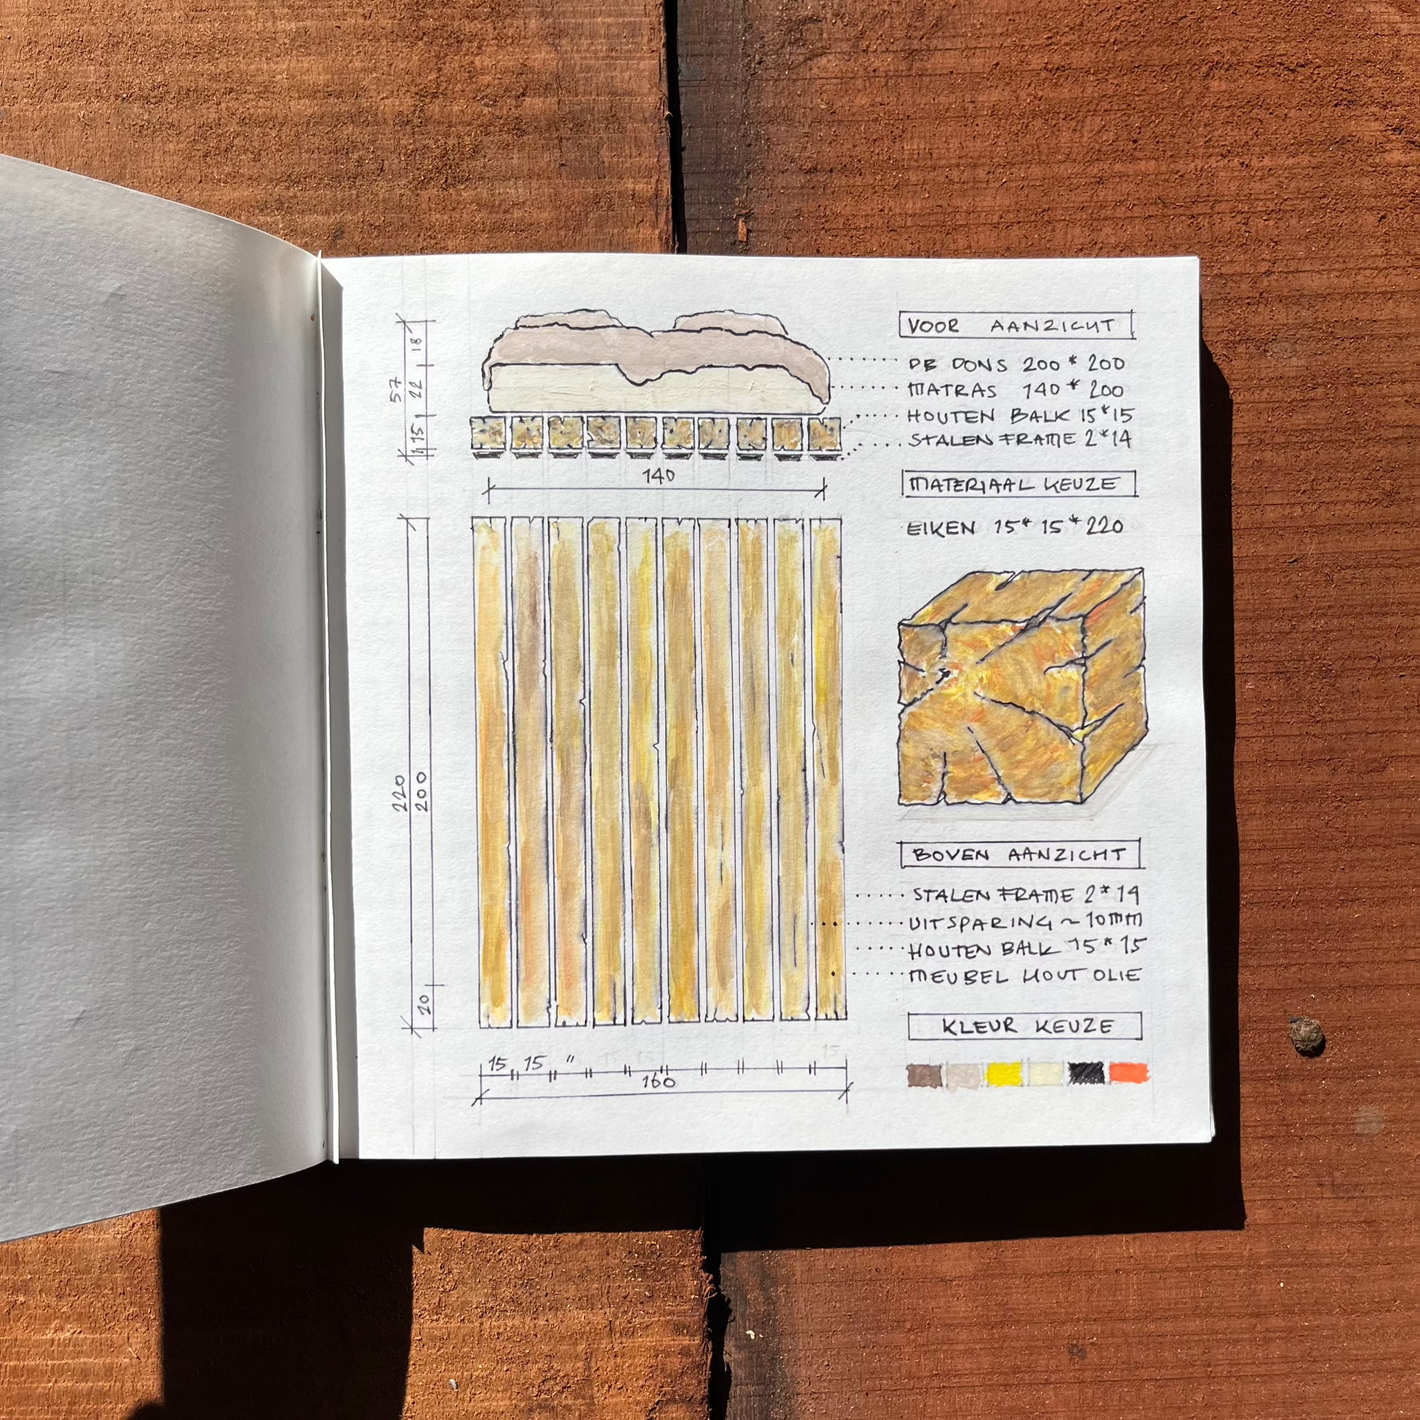 VOOR AANZICHT
DB DONS 200 * 200
MATRAS 140 * 200
HOUTEN BALK 15*15
STALEN FRAME 2*14
MATERIAAL KEUZE
EIKEN 15* 15 * 220
BOVEN AANZICHT
STALEN FRAME 2*14
UITSPARING ~ 10MM
HOUTEN BALK 15 * 15
MEUBEL HOUT OLIE
KLEUR KEUZE
57
18
22
15
140
220
200
20
15 15 "
160